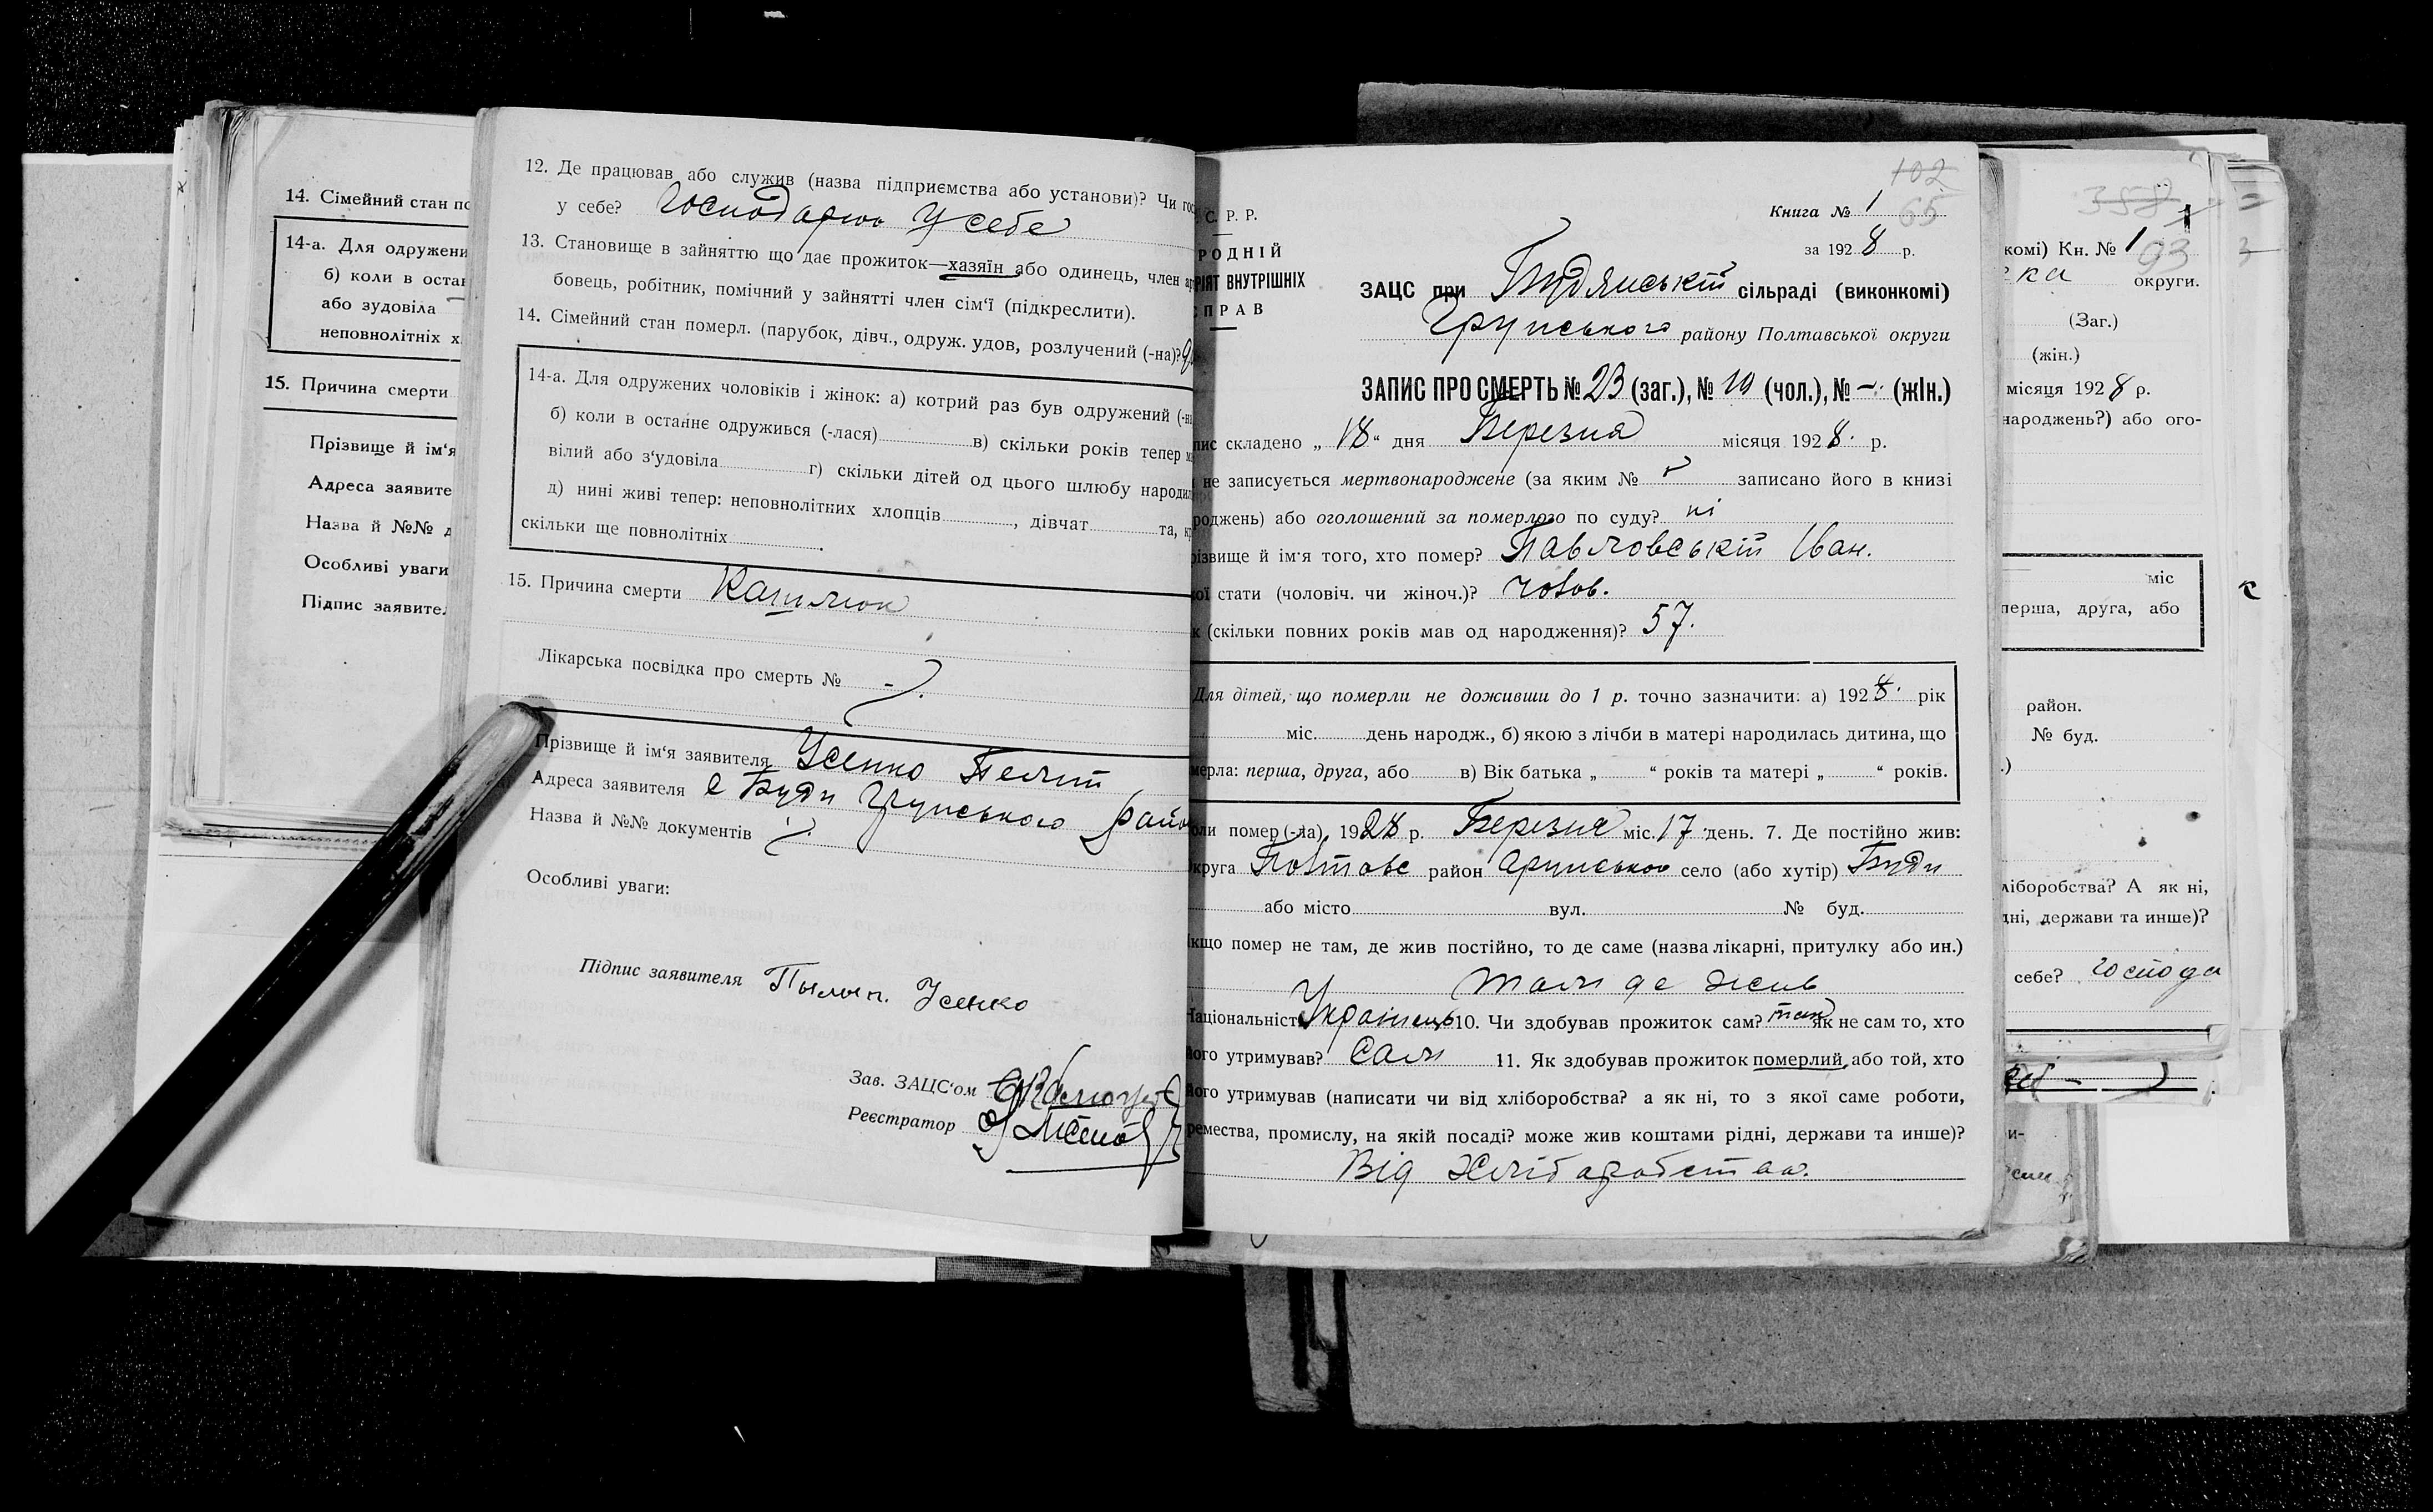 14. Сімейний стан по
14-а. Для одружени
б) коли в остан
або зудовіла
неповнолітніх х
15. Причина смерти
Прізвище й ім'я
Адреса заявите
Назва й №№ д
Особливі уваги
Підпис заявител
12. Де працював або служив (назва підприємства або установи)? Чи гос
у себе? Господарюв у себе
13. Становище в зайняттю що дає прожиток—хазяїн або одинець, член ар
бовець, робітник, помічний у зайнятті член сім'ї (підкреслити).
14. Сімейний стан померл. (парубок, дівч., одруж. удов, розлучений (-на)?
14-а. Для одружених чоловіків і жінок: а) котрий раз був одружений (-на
б) коли в останнє одружився (-лася) в) скільки років тепер
вілий або з'удовіла г) скільки дітей од цього шлюбу народил
д) нині живі тепер: неповнолітних хлопців , дівчат та,
скільки ще повнолітніх .
15. Причина смерти Кашлюк
Лікарська посвідка про смерть № -
Прізвище й ім'я заявителя Усенко Пелип
Адреса заявителя с Буди Грунського райо
Назва й №№ документів
Особливі уваги:
Підпис заявителя Пылып. Усенко
Зав. ЗАЦС'ом
Реєстратор
С. Р. Р.
РОДНІЙ
РІЯТ ВНУТРІШНІХ
ПРАВ
102
65
Книга № 1
за 1928 р.
ЗАЦС при Будянській сільраді (виконкомі)
Грунського району Полтавської округи
ЗАПИС ПРО СМЕРТЬ № 23 (заг.), № 10 (чол.), № - (жін.)
пис складено „ 18 “ дня Березня місяця 1928 р.
не записується мертвонароджене (за яким № записано його в книзі
роджень) або оголошений за померлого по суду? ні
різвище й ім'я того, хто помер? Павловській Іван.
ої стати (чоловіч. чи жіноч.)? чолов.
к (скільки повних років мав од народження)? 57.
Для дітей, що померли не доживши до 1 р. точно зазначити: а) 1928 рік
міс. день народж., б) якою з лічби в матері народилась дитина, що
мерла: перша, друга, або в) Вік батька „ “ років та матері „ “ років.
оли помер (-ла) 1928 р. Березня міс. 17 день. 7. Де постійно жив:
круга Полтавс район Грунського село (або хутір) Буди
або місто вул. № буд.
кщо помер не там, де жив постійно, то де саме (назва лікарні, притулку або ин.)
там де жив
Національність Українець 10. Чи здобував прожиток сам? так як не сам то, хто
його утримував? Сам 11. Як здобував прожиток померлий, або той, хто
його утримував (написати чи від хліборобства? а як ні, то з якої саме роботи,
ремества, промислу, на якій посаді? може жив коштами рідні, держави та инше)?
Від Хліборобства.
358
93
комі) Кн. № 1
ка округи.
(Заг.)
(жін.)
місяця 1928 р.
народжень?) або ого-
міс
перша, друга, або
район.
№ буд.
хліборобства? А як ні,
дні, держави та инше)?
себе? господа